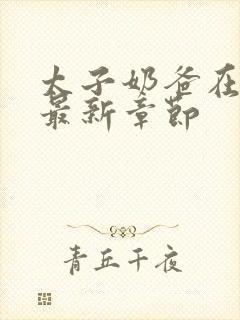 太子奶爸在
最新章节
青丘千夜